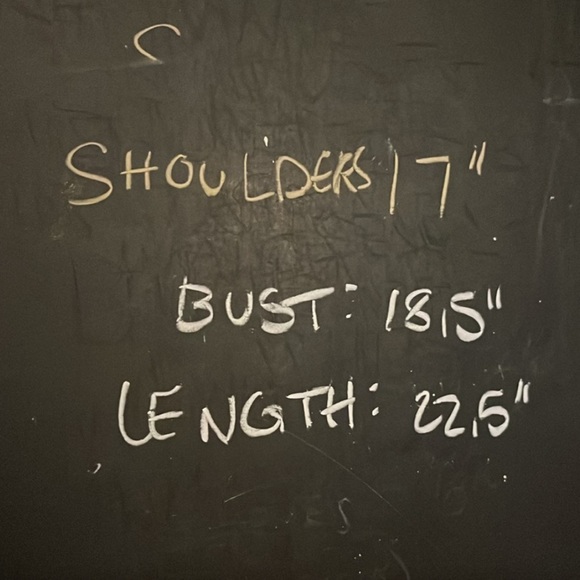 S
SHOULDERS 17"
BUST: 18,5"
LENGTH: 22,5"